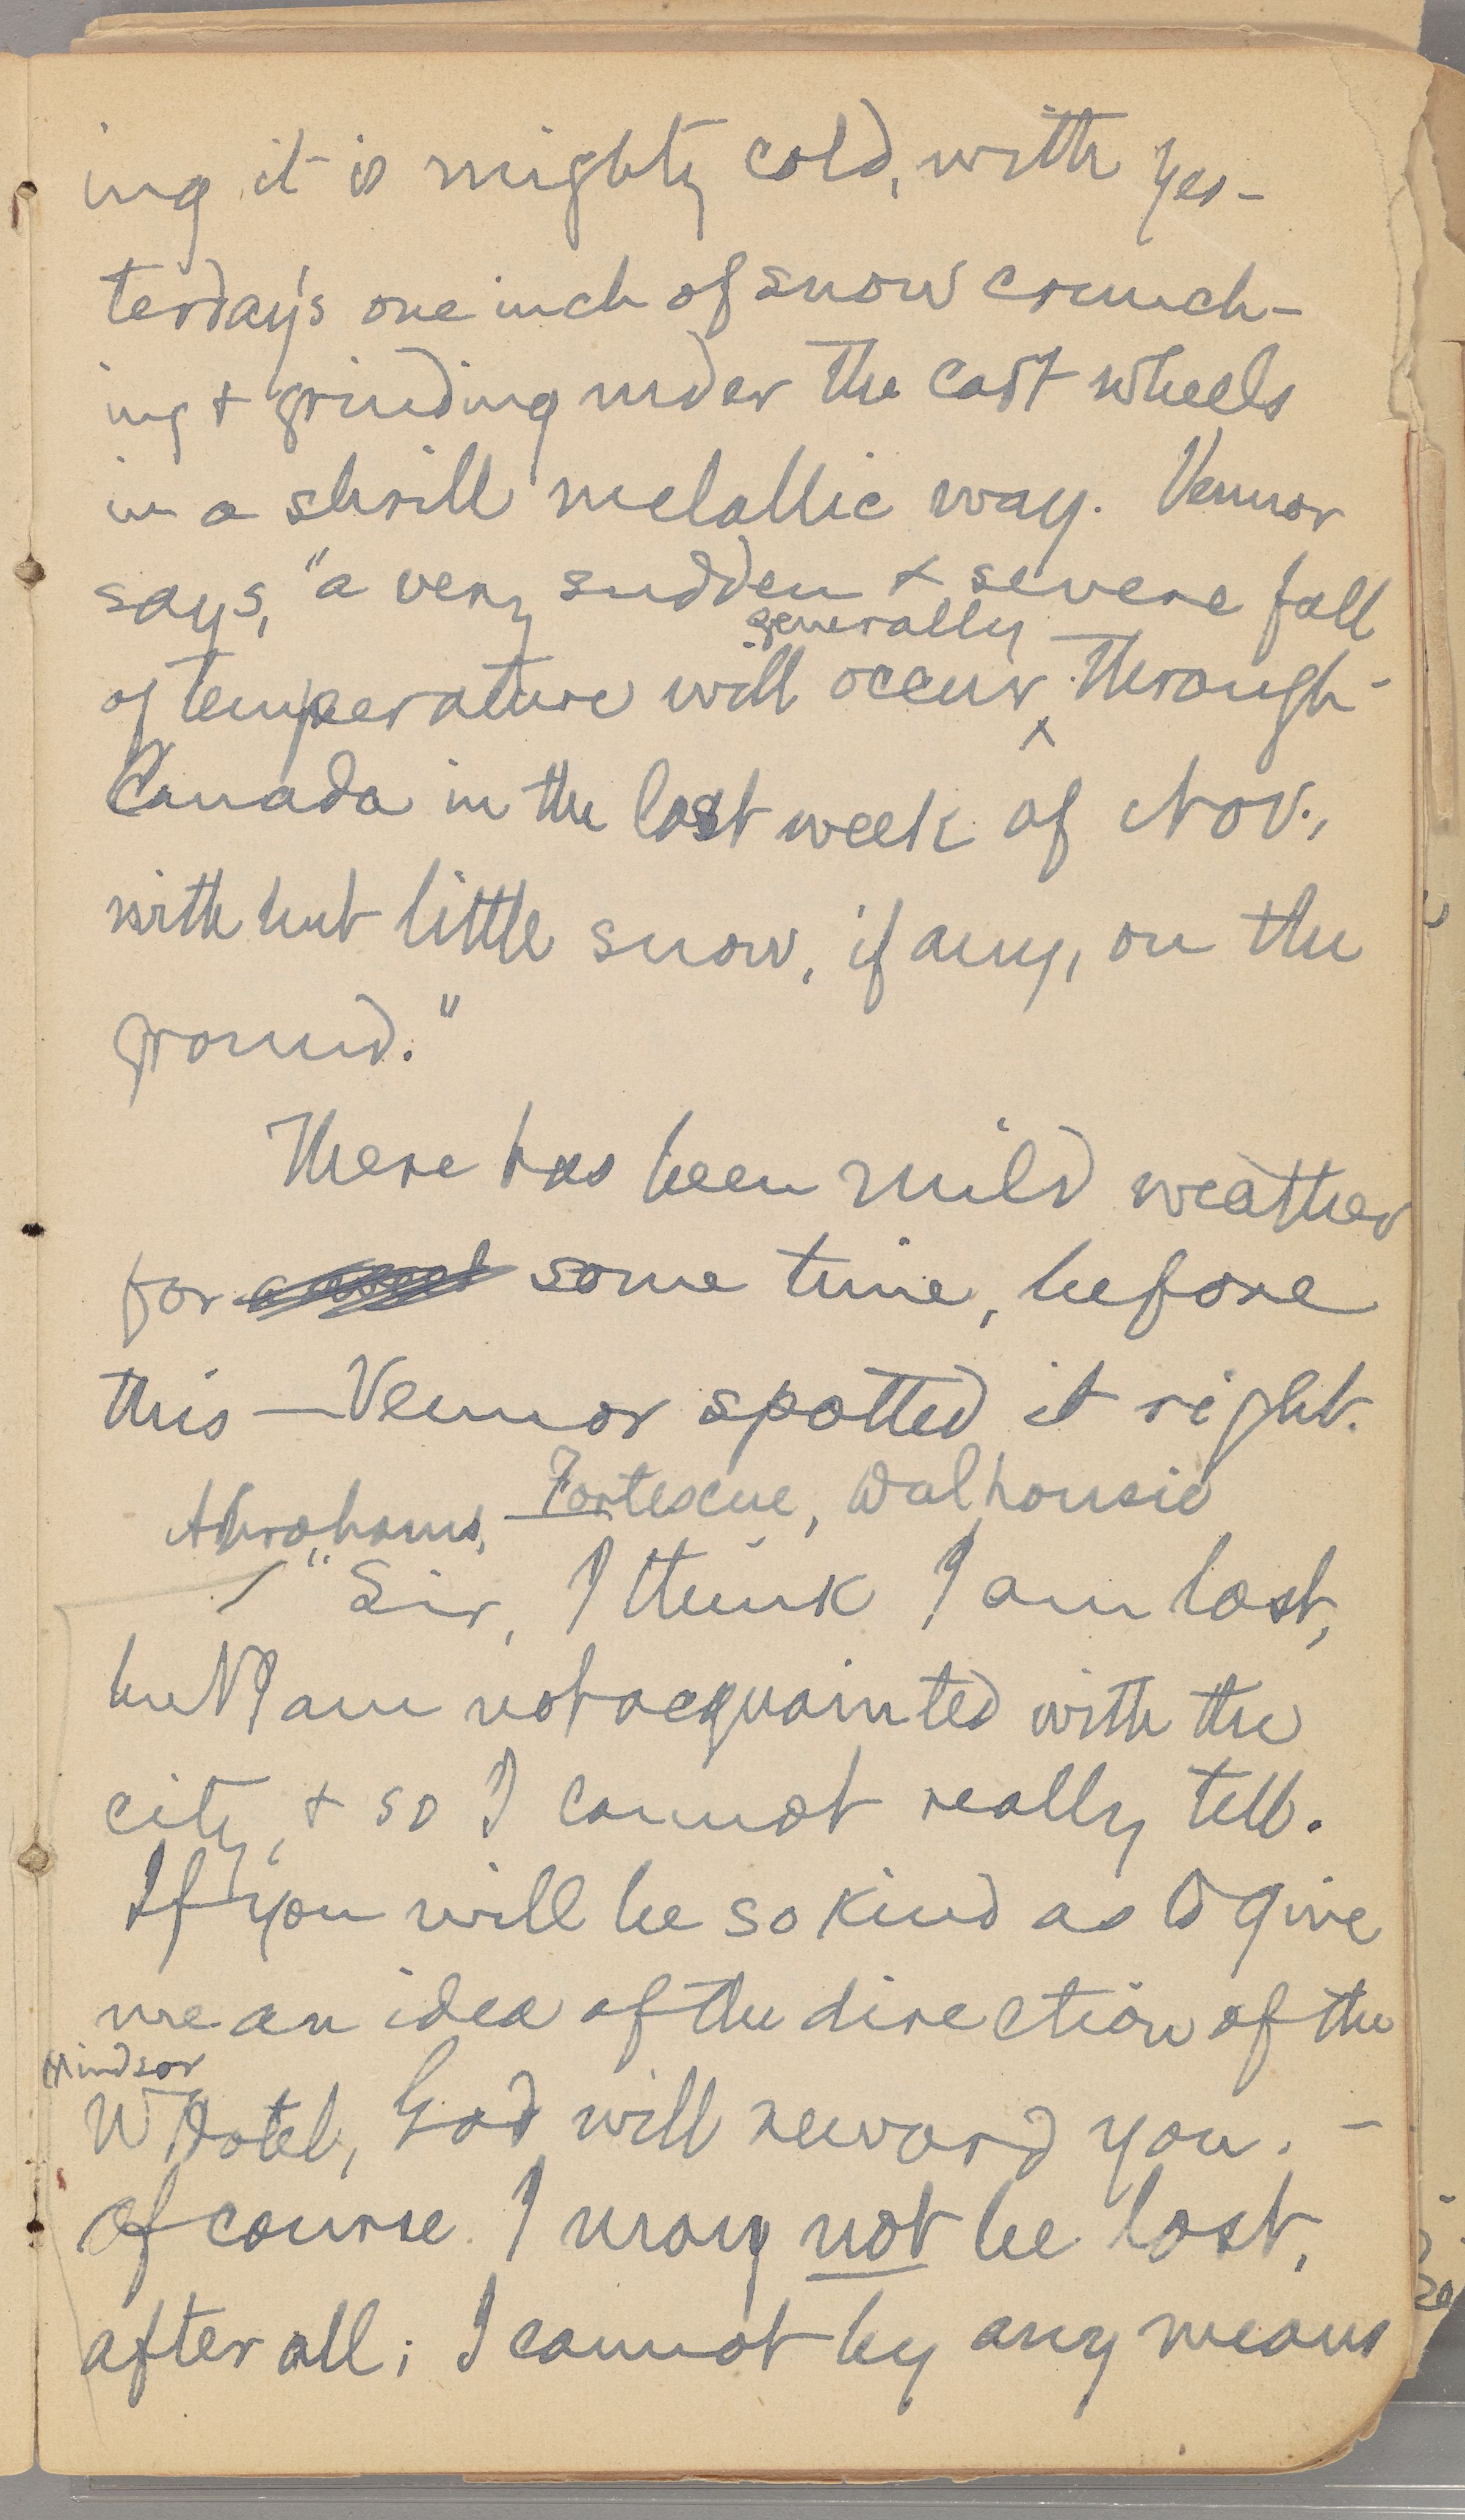 ing it is mighty cold, with yes-
terday's one inch of snow crunch-
ing + grinding under the cart wheels
in a shrill metallic way. Vennor
says, "a very sudden + severe fall
generally
of temperature will occur ^ through
Canada in the last week of Nov.,
with but little snow, if any, on the
ground."
There has been mild weather
for some time, before
this — Vennor spotted it right.
Abrahams, Fortescue, Dalhousie
"Sir, I think I am lost,
but I am not acquainted with the
city, + so I cannot really tell.
If you will be so kind as to give
me an idea of the direction of the
Windsor
W Hotel, God will reward you. —
Of course I may not be lost,
after all; I cannot by any means